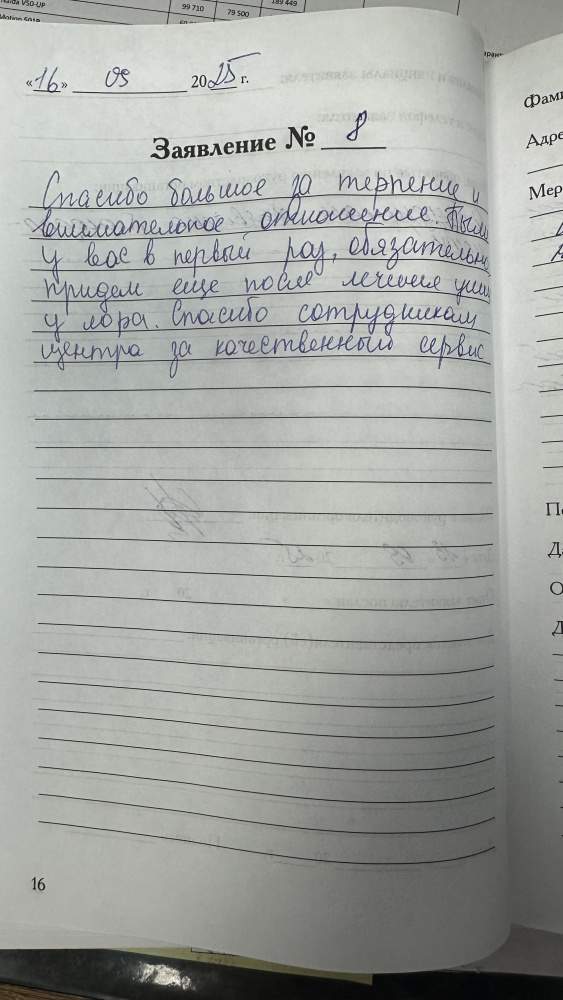 V50-UP
99 710
79 500
189 449
«16» 09 2025 г.
Заявление № 8
Спасибо большое за терпение и
внимательное отношение. Были
у вас в первый раз, обязательно
придем еще после лечения уши
у лора. Спасибо сотрудникам
центра за качественный сервис
16
Фами
Адре
Мер